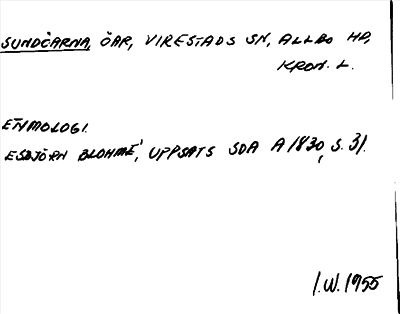 SUNDÖARNA, ÖAR, VIRESTADS SN, ALLBO HD,
KRON. L.
ETYMOLOGI.
ESBJÖRN BLOHMÉ, UPPSATS SDA A 1830, S. 31.
I.W. 1955